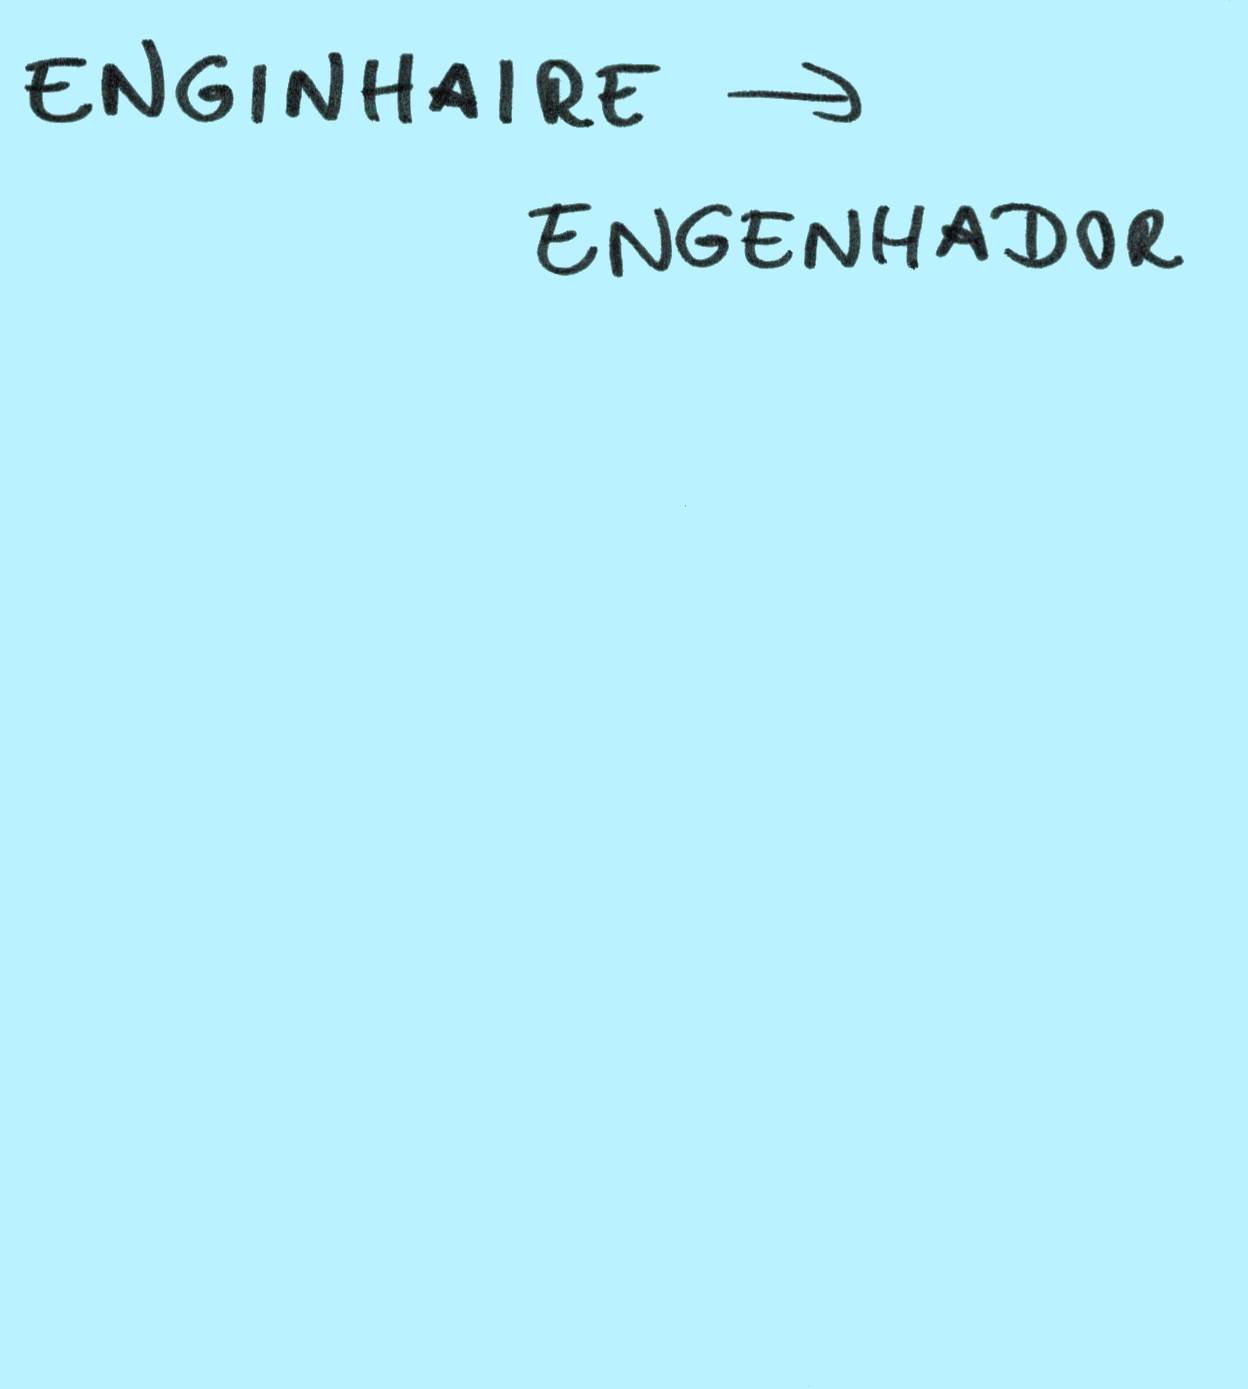 ENGINHAIRE →
ENGENHADOR